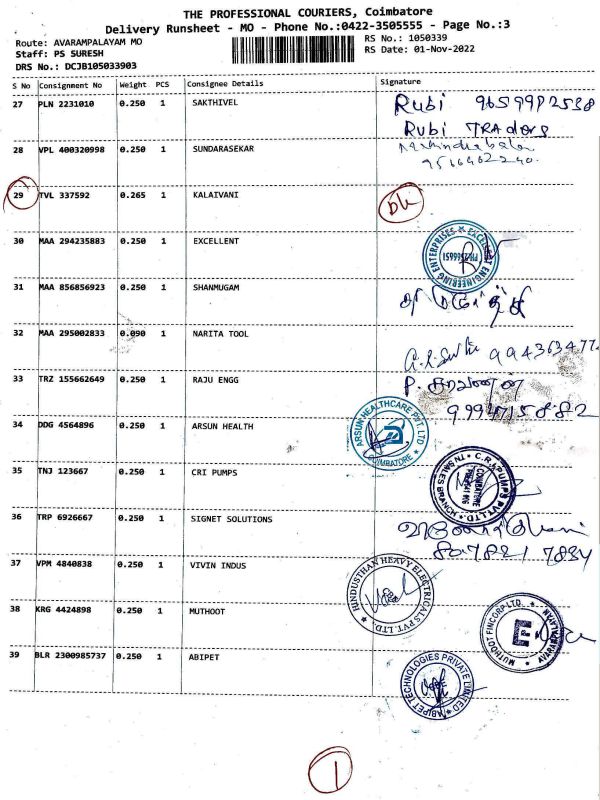 THE PROFESSIONAL COURIERS, Coimbatore
Delivery Runsheet - MO - Phone No.:0422-3505555 - Page No.:3
Route: AVARAMPALAYAM MO
RS No.: 1050339
Staff: PS SURESH
RS Date: 01-Nov-2022
DRS No.: DCJB105033903
S No Consignment No Weight PCS Consignee Details Signature
27 PLN 2231010 0.250 1 SAKTHIVEL Rubi 9659982538
Rubi TRaders
28 VPL 400320998 0.250 1 SUNDARASEKAR
29 TVL 337592 0.265 1 KALAIVANI
30 MAA 294235883 0.250 1 EXCELLENT
EXCELLENT ENGINEERING ENTERPRISES
31 MAA 856856923 0.250 1 SHANMUGAM
32 MAA 295002833 0.090 1 NARITA TOOL
33 TRZ 155662649 0.250 1 RAJU ENGG P. சரவணன்
9994715882
34 DDG 4564896 0.250 1 ARSUN HEALTH
ARSUN HEALTHCARE PVT. LTD
COIMBATORE
35 TNJ 123667 0.250 1 CRI PUMPS
C.R.I. PUMPS PVT.LTD.
COIMBATORE
36 TRP 6926667 0.250 1 SIGNET SOLUTIONS
80782 1 7834
37 VPM 4840838 0.250 1 VIVIN INDUS
HINDUSTHAN HEAVY ELECTRICALS PVT. LTD.
38 KRG 4424898 0.250 1 MUTHOOT
MUTHOOT FINCORP LTD.
39 BLR 2300985737 0.250 1 ABIPET
ABIPET TECHNOLOGIES PRIVATE LIMITED
1